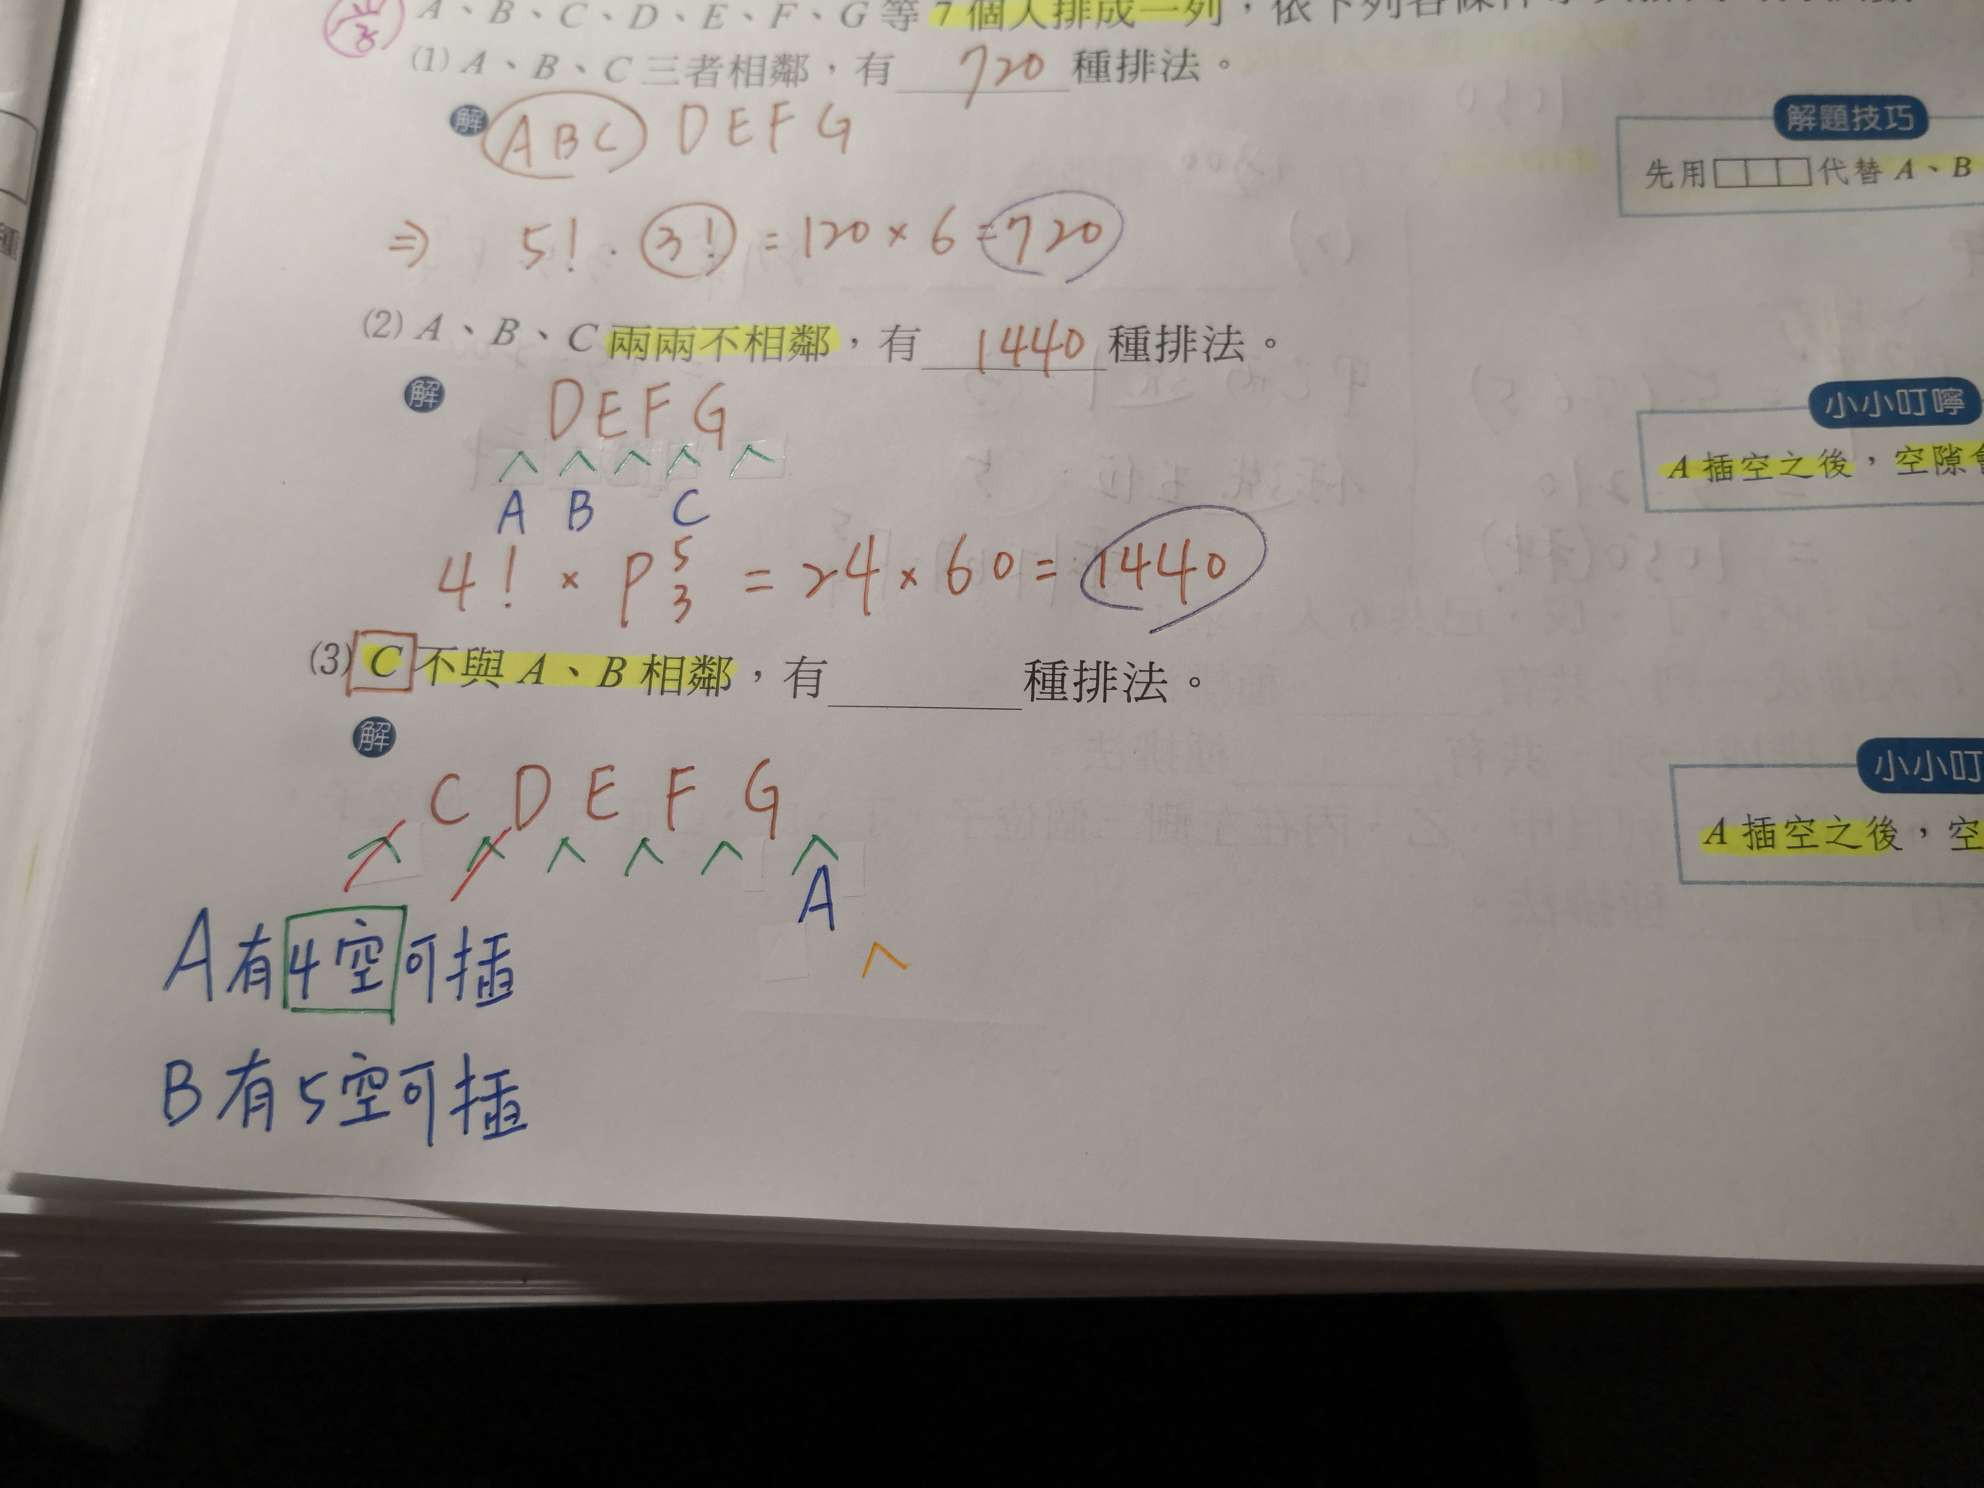 A、B、C、D、E、F、G 等 7 個人排成一列，依下列各條件
(1) A、B、C 三者相鄰，有 720 種排法。
解 ABC DEFG
⇒ 5! · 3! = 120 × 6 = 720
解題技巧
先用□□□代替 A、B
(2) A、B、C 兩兩不相鄰，有 1440 種排法。
解 DEFG
A B C
4! × P⁵₃ = 24 × 60 = 1440
小小叮嚀
A 插空之後，空隙
(3) C 不與 A、B 相鄰，有 種排法。
解
C D E F G
A
小小叮
A 插空之後，空
A有4空可插
B有5空可插
種